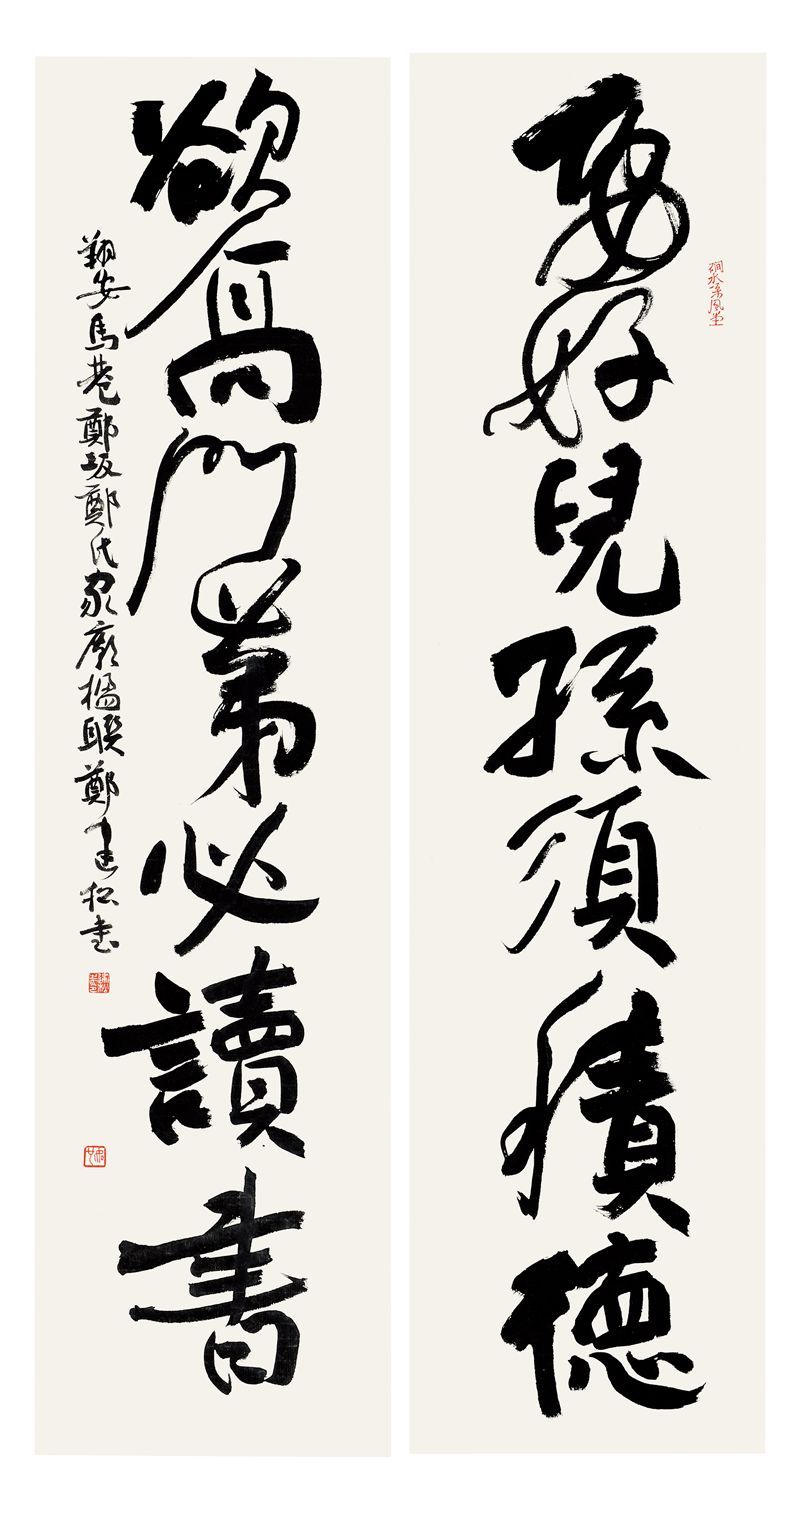 要好兒孫須積德
欲高門第必讀書
翔安馬巷鄭坂鄭氏家廟楹聯鄭書